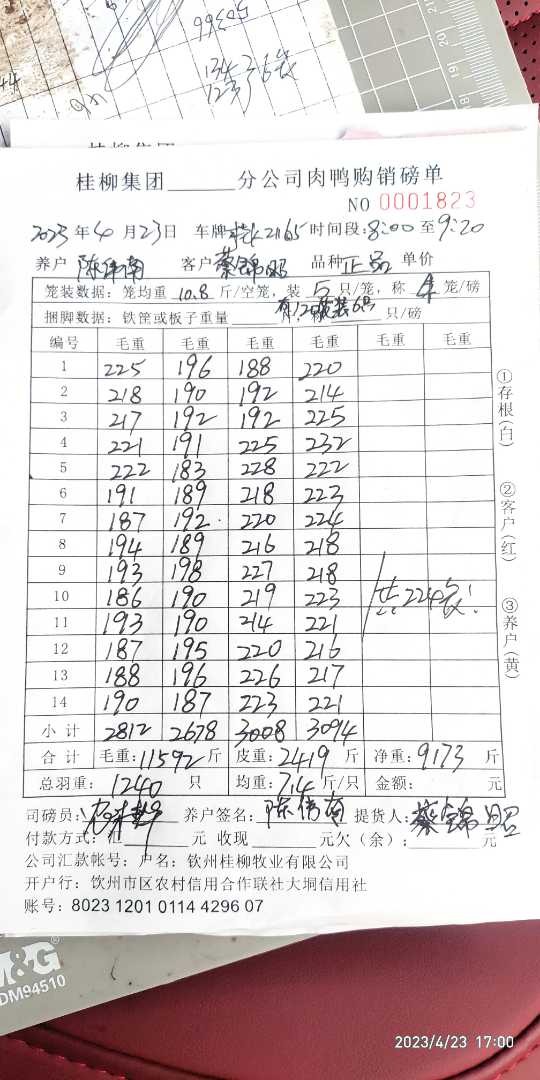 50366
134 36笼
123
44
桂柳集团
桂柳集团______分公司肉鸭购销磅单
NO 0001823
2023年4月23日 车牌 2165 时间段:8:00至9:20
养户 陈伟南 客户 蔡锦昭 品种 正品 单价
笼装数据:笼均重 10.8 斤/空笼,装 5 只/笼,称 4 笼/磅
捆脚数据:铁筐或板子重量 有120 装6只 只/磅
编号 毛重 毛重 毛重 毛重 毛重 毛重
1 225 196 188 220
2 218 190 192 214
3 217 192 192 225
4 221 191 225 232
5 222 183 228 222
6 191 189 218 223
7 187 192 220 224
8 194 189 216 218
9 193 198 227 218
10 186 190 219 223 共224笼!
11 193 190 214 221
12 187 195 220 216
13 188 196 226 217
14 190 187 223 221
小计 2812 2678 3008 3094
合计 毛重:11592斤 皮重:2419斤 净重:9173斤
总羽重:1240只 均重:7.4斤/只 金额: 元
司磅员: 养户签名:陈伟南 提货人:蔡锦昭
付款方式:汇______元 收现______元欠(余):______元
公司汇款帐号:户名:钦州桂柳牧业有限公司
开户行:钦州市区农村信用合作联社大垌信用社
账号:8023 1201 0114 4296 07
①存根(白)
②客户(红)
③养户(黄)
M&G
DM94510
2023/4/23 17:00